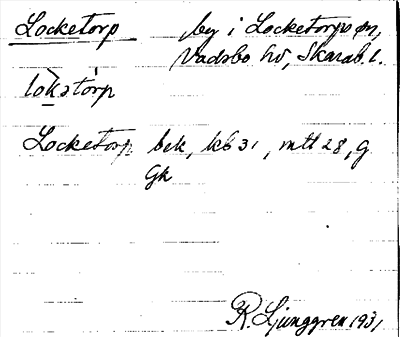 Locketorp by i Locketorps sn,
Vadsbo hd, Skarab. l.
lòkatórp
Locketorp bek, kb 31, mtl 28, G
Gk
R. Ljunggren 1931